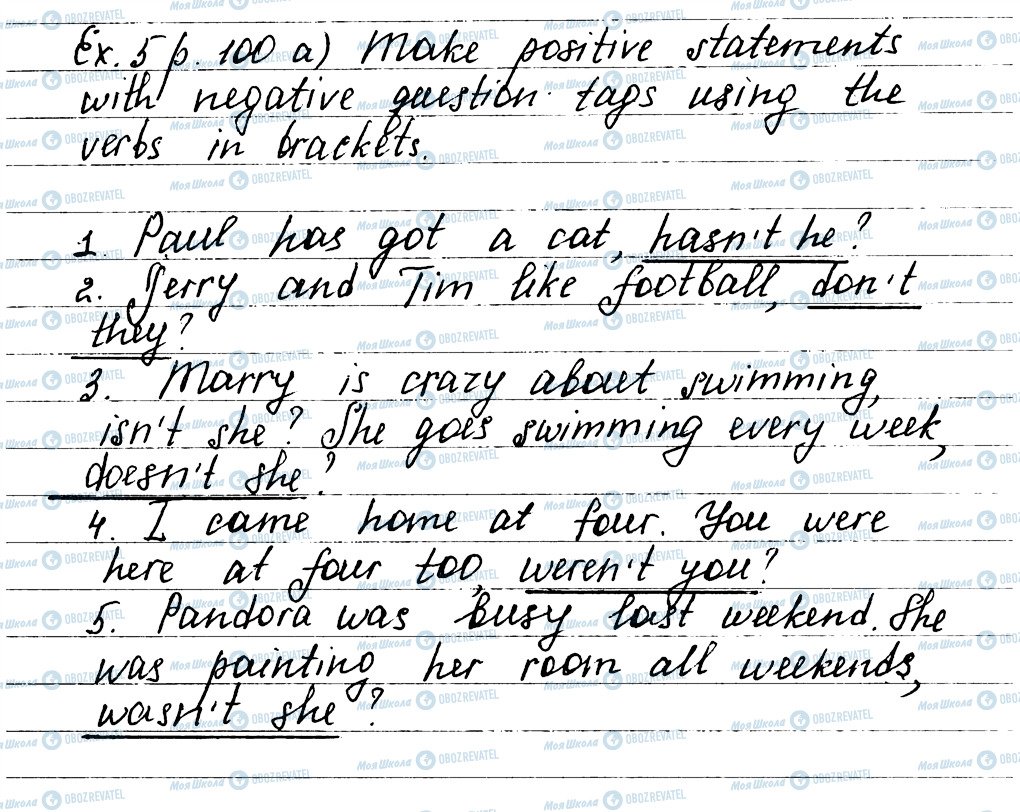 Ex. 5 p. 100 a) Make positive statements
with negative question tags using the
verbs in brackets.
1. Paul has got a cat, hasn't he?
2. Jerry and Tim like football, don't
they?
3. Marry is crazy about swimming,
isn't she? She goes swimming every week,
doesn't she?
4. I came home at four. You were
here at four too, weren't you?
5. Pandora was busy last weekend. She
was painting her room all weekends,
wasn't she?